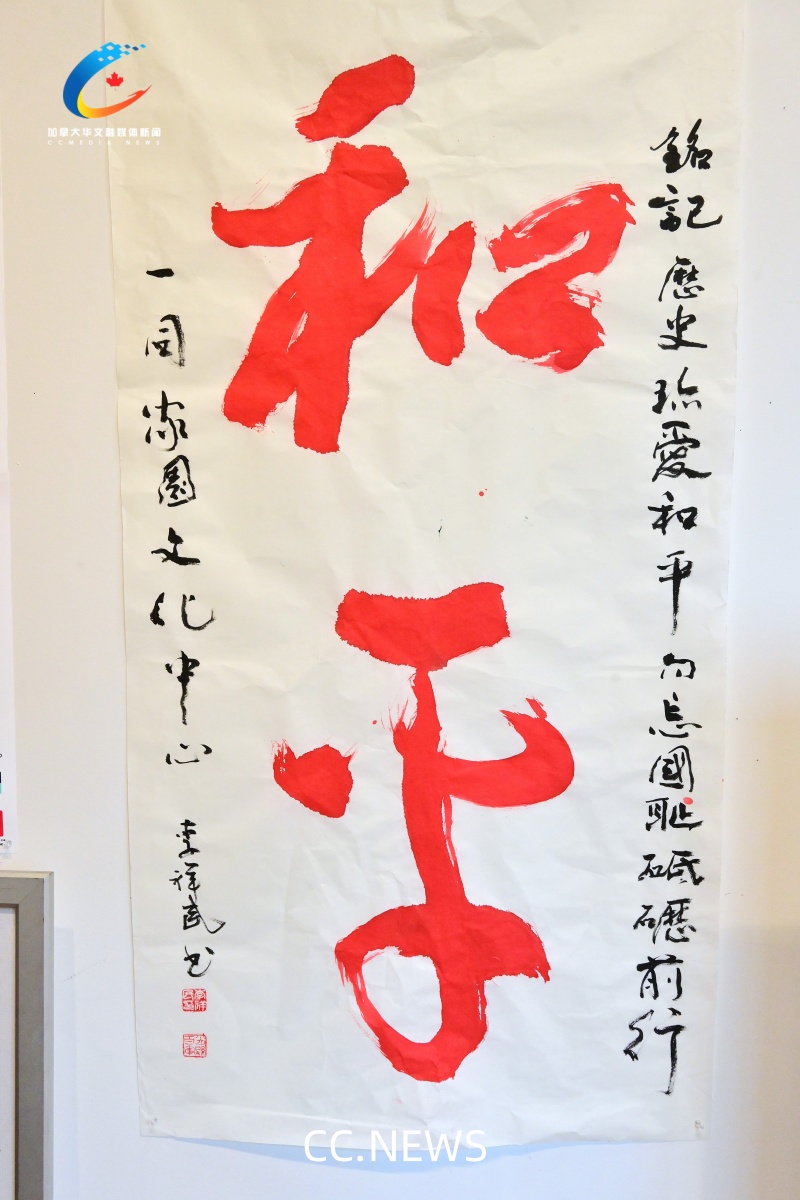 加拿大华文融媒体新闻
CCMEDIA NEWS
和平
銘記歷史珍愛和平勿忘國耻砥礪前行
一同家園文化中心
李祥武书
CC.NEWS